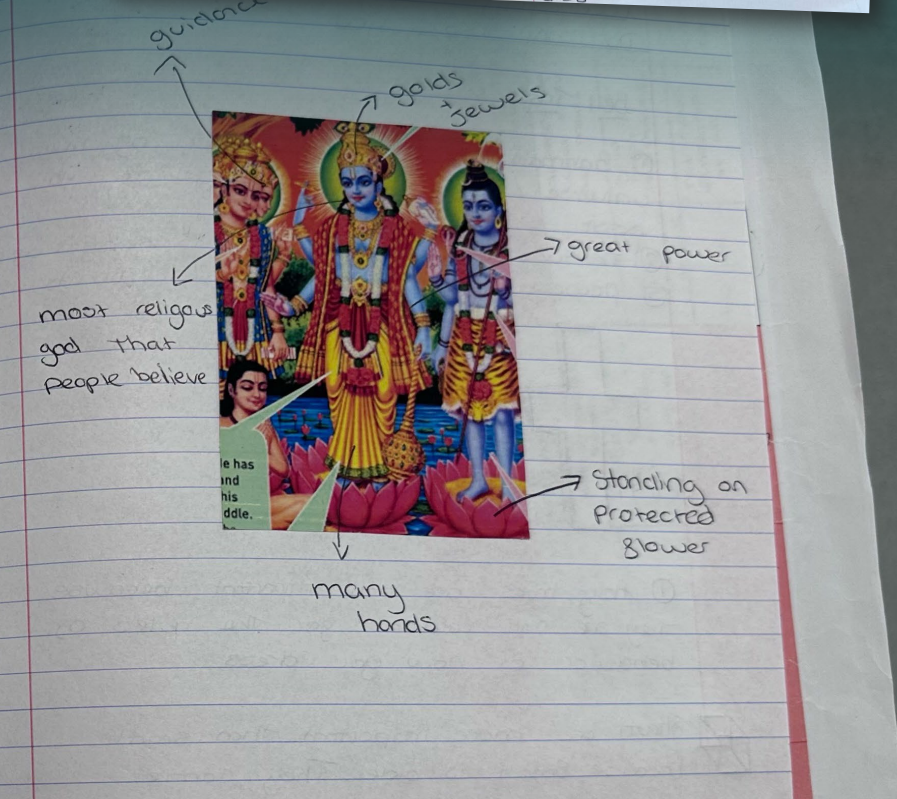 guidance
golds
+ jewels
great power
most religous
god that
people believe
le has
and
his
ddle.
Standing on
protected
flower
many
hands